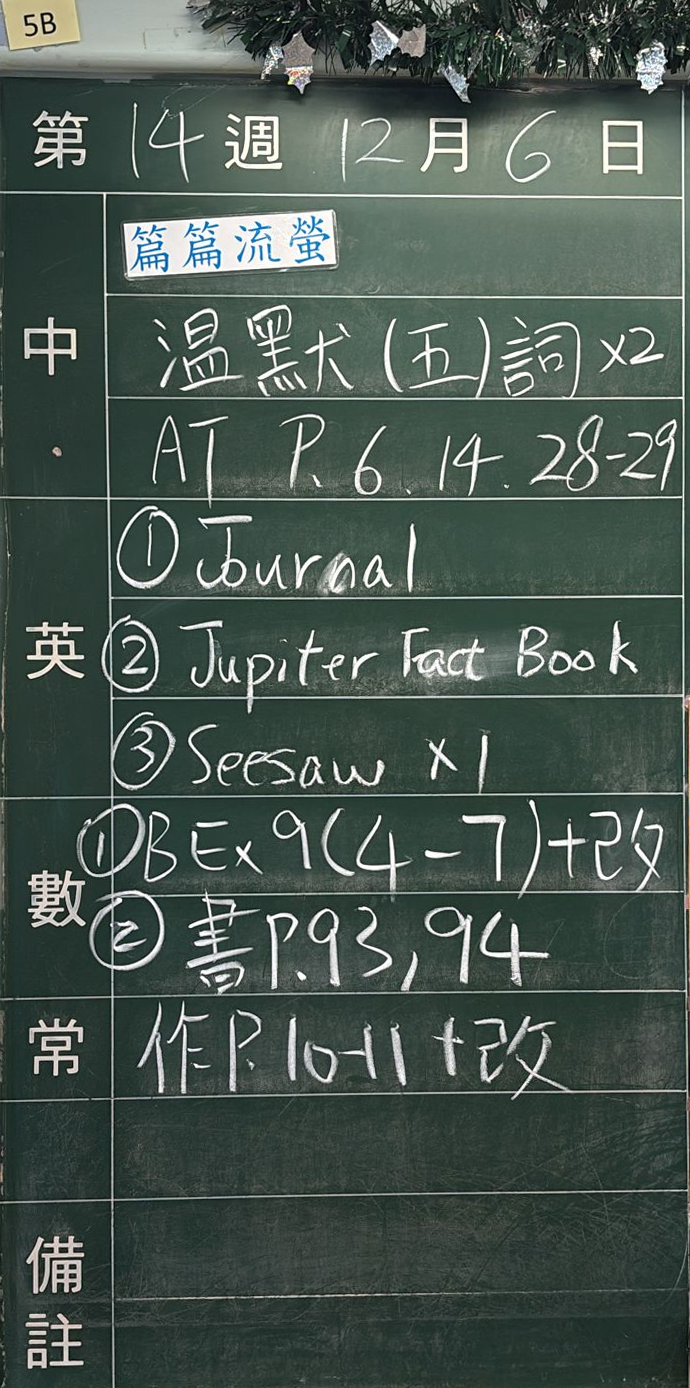 5B
第 14 週 12 月 6 日
中
篇篇流螢
温默(五)詞x2
AT P. 6. 14. 28-29
英
① Journal
② Jupiter Fact Book
③ Seesaw x1
數
① B Ex 9(4-7)+改
② 書P.93, 94
常
作P.10-11+改
備註